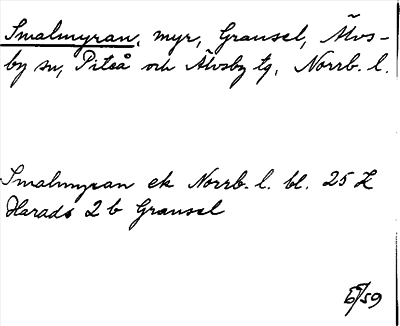 Smalmyran, myr, Gransel, Älvs-
by sn, Piteå och Älvsby tg, Norrb. l.
Smalmyran ek Norrb. l. bl. 25 K
Harads 2 b Gransel
/59